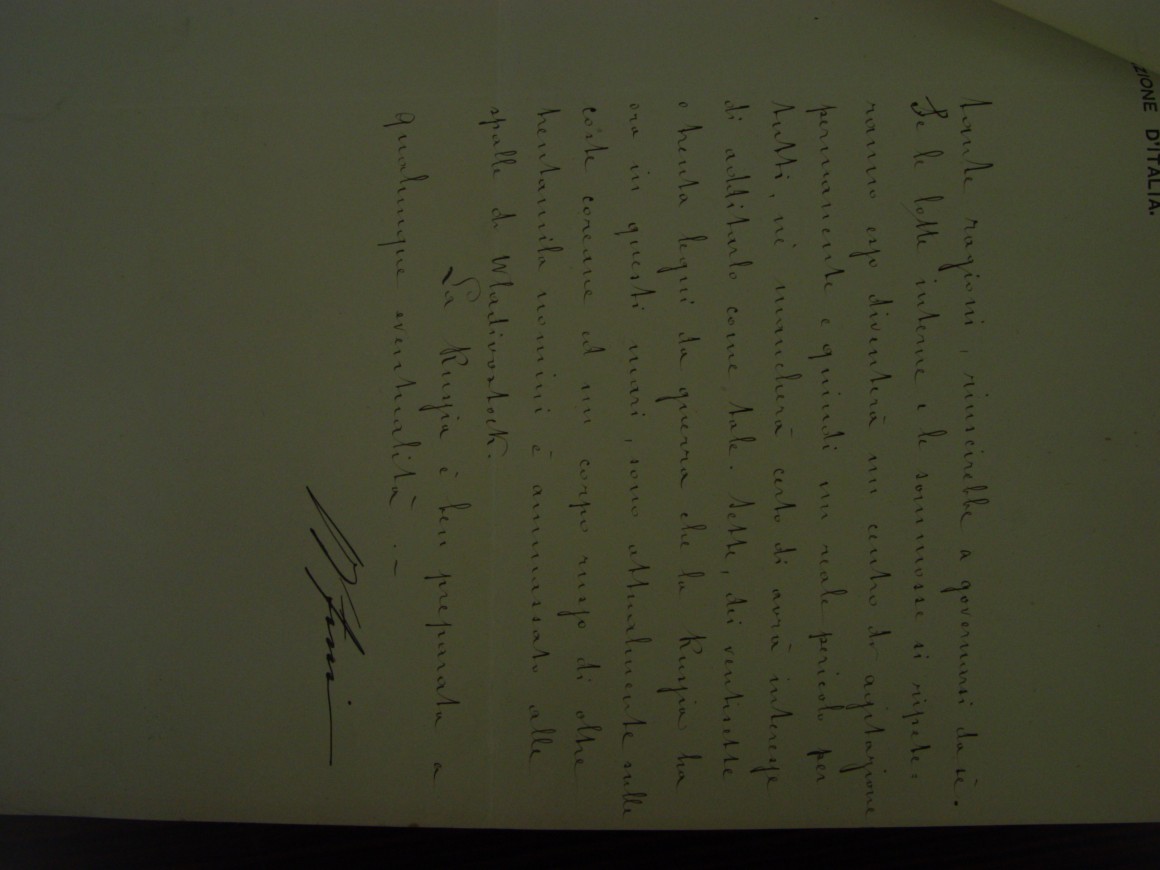 ZIONE D'ITALIA.
tante ragioni, riuscirebbe a governarsi da sè.
Se le lotte interne e le sommosse si ripete=
ranno esso diventerà un centro di agitazione
permanente e quindi un reale pericolo per
tutti, nè mancherà certo di avrà interesse
di additarlo come tale. Sette, dei ventisette
o trenta legni da guerra che la Russia ha
ora in questi mari, sono attualmente sulle
coste coreane ed un corpo russo di oltre
trentamila uomini è ammassato alle
spalle di Wladivostock.
La Russia è ben preparata a
qualunque eventualità. –